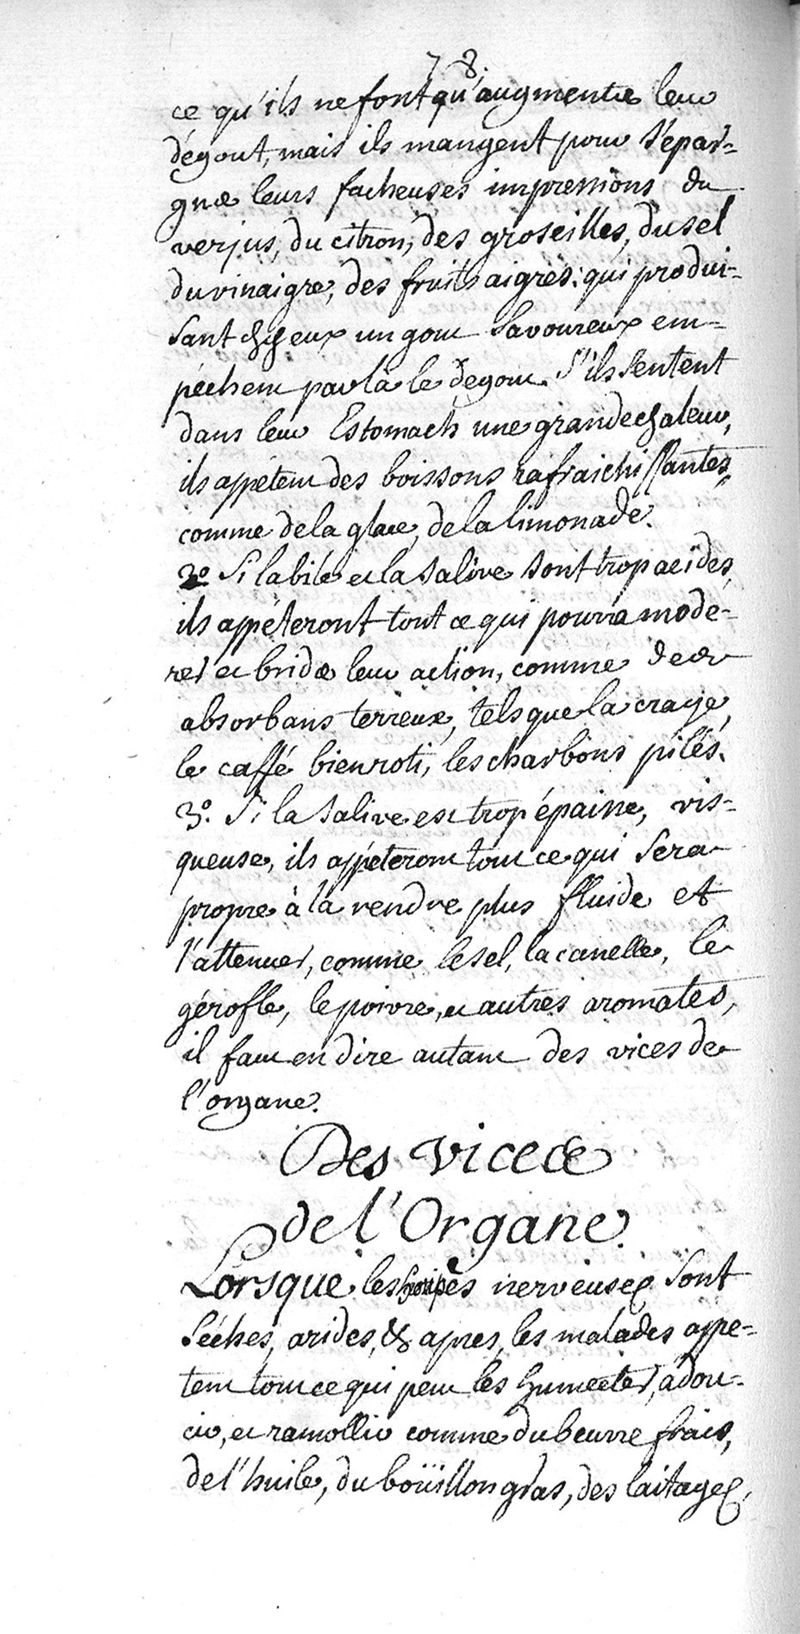 78.
ce qu'ils ne font qu'augmenter leur
dégout, mais ils mangent pour s'épar-
gner leurs facheuses impressions du
verjus, du citron, des groseilles, du sel
du vinaigre, des fruits aigres: qui produi-
sant chez eux un gout savoureux em-
pêchent par là le degout. S'ils sentent
dans leur Estomach une grande chaleur,
ils appétent des boissons rafraichissantes,
comme de la glace, de la limonade.
2º Si la bile et la salive sont trop acides,
ils appéteront tout ce qui pourra mode-
rer et brider leur action, comme des
absorbans terreux, tels que la craye,
le caffé bien roti, les charbons pilés.
3º. Si la salive est trop épaisse, vis-
queuse, ils appeteront tout ce qui sera
propre à la rendre plus fluide et
l'attenuer, comme le sel, la canelle, le
gérofle, le poivre, et autres aromates,
il faut en dire autant des vices de
l'organe.
Des vices
de l'Organe.
Lorsque les houpès nerveuses sont
séches, arides, & apres, les malades appe-
tent tout ce qui peut les humecter, adou-
cir, et ramollir comme du beurre frais,
de l'huile, du boüillon gras, des laitages,